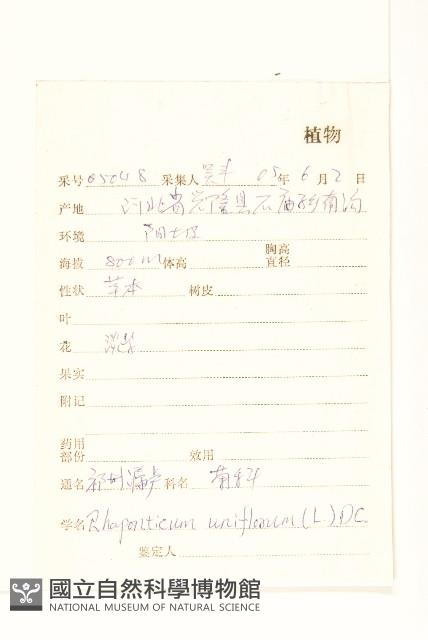 植物
采号 05048 采集人 吴丰 05年 6月 2日
产地 河北省兴隆县石庙子沟
环境 阳土坡
海拔 800 m 体高 胸高直径
性状 草本 树皮
叶
花 淡紫
果实
附记
药用部份 效用
通名 祁州漏芦 科名 菊科
学名 Rhaponticum uniflorum (L.) DC.
鉴定人
國立自然科學博物館
NATIONAL MUSEUM OF NATURAL SCIENCE